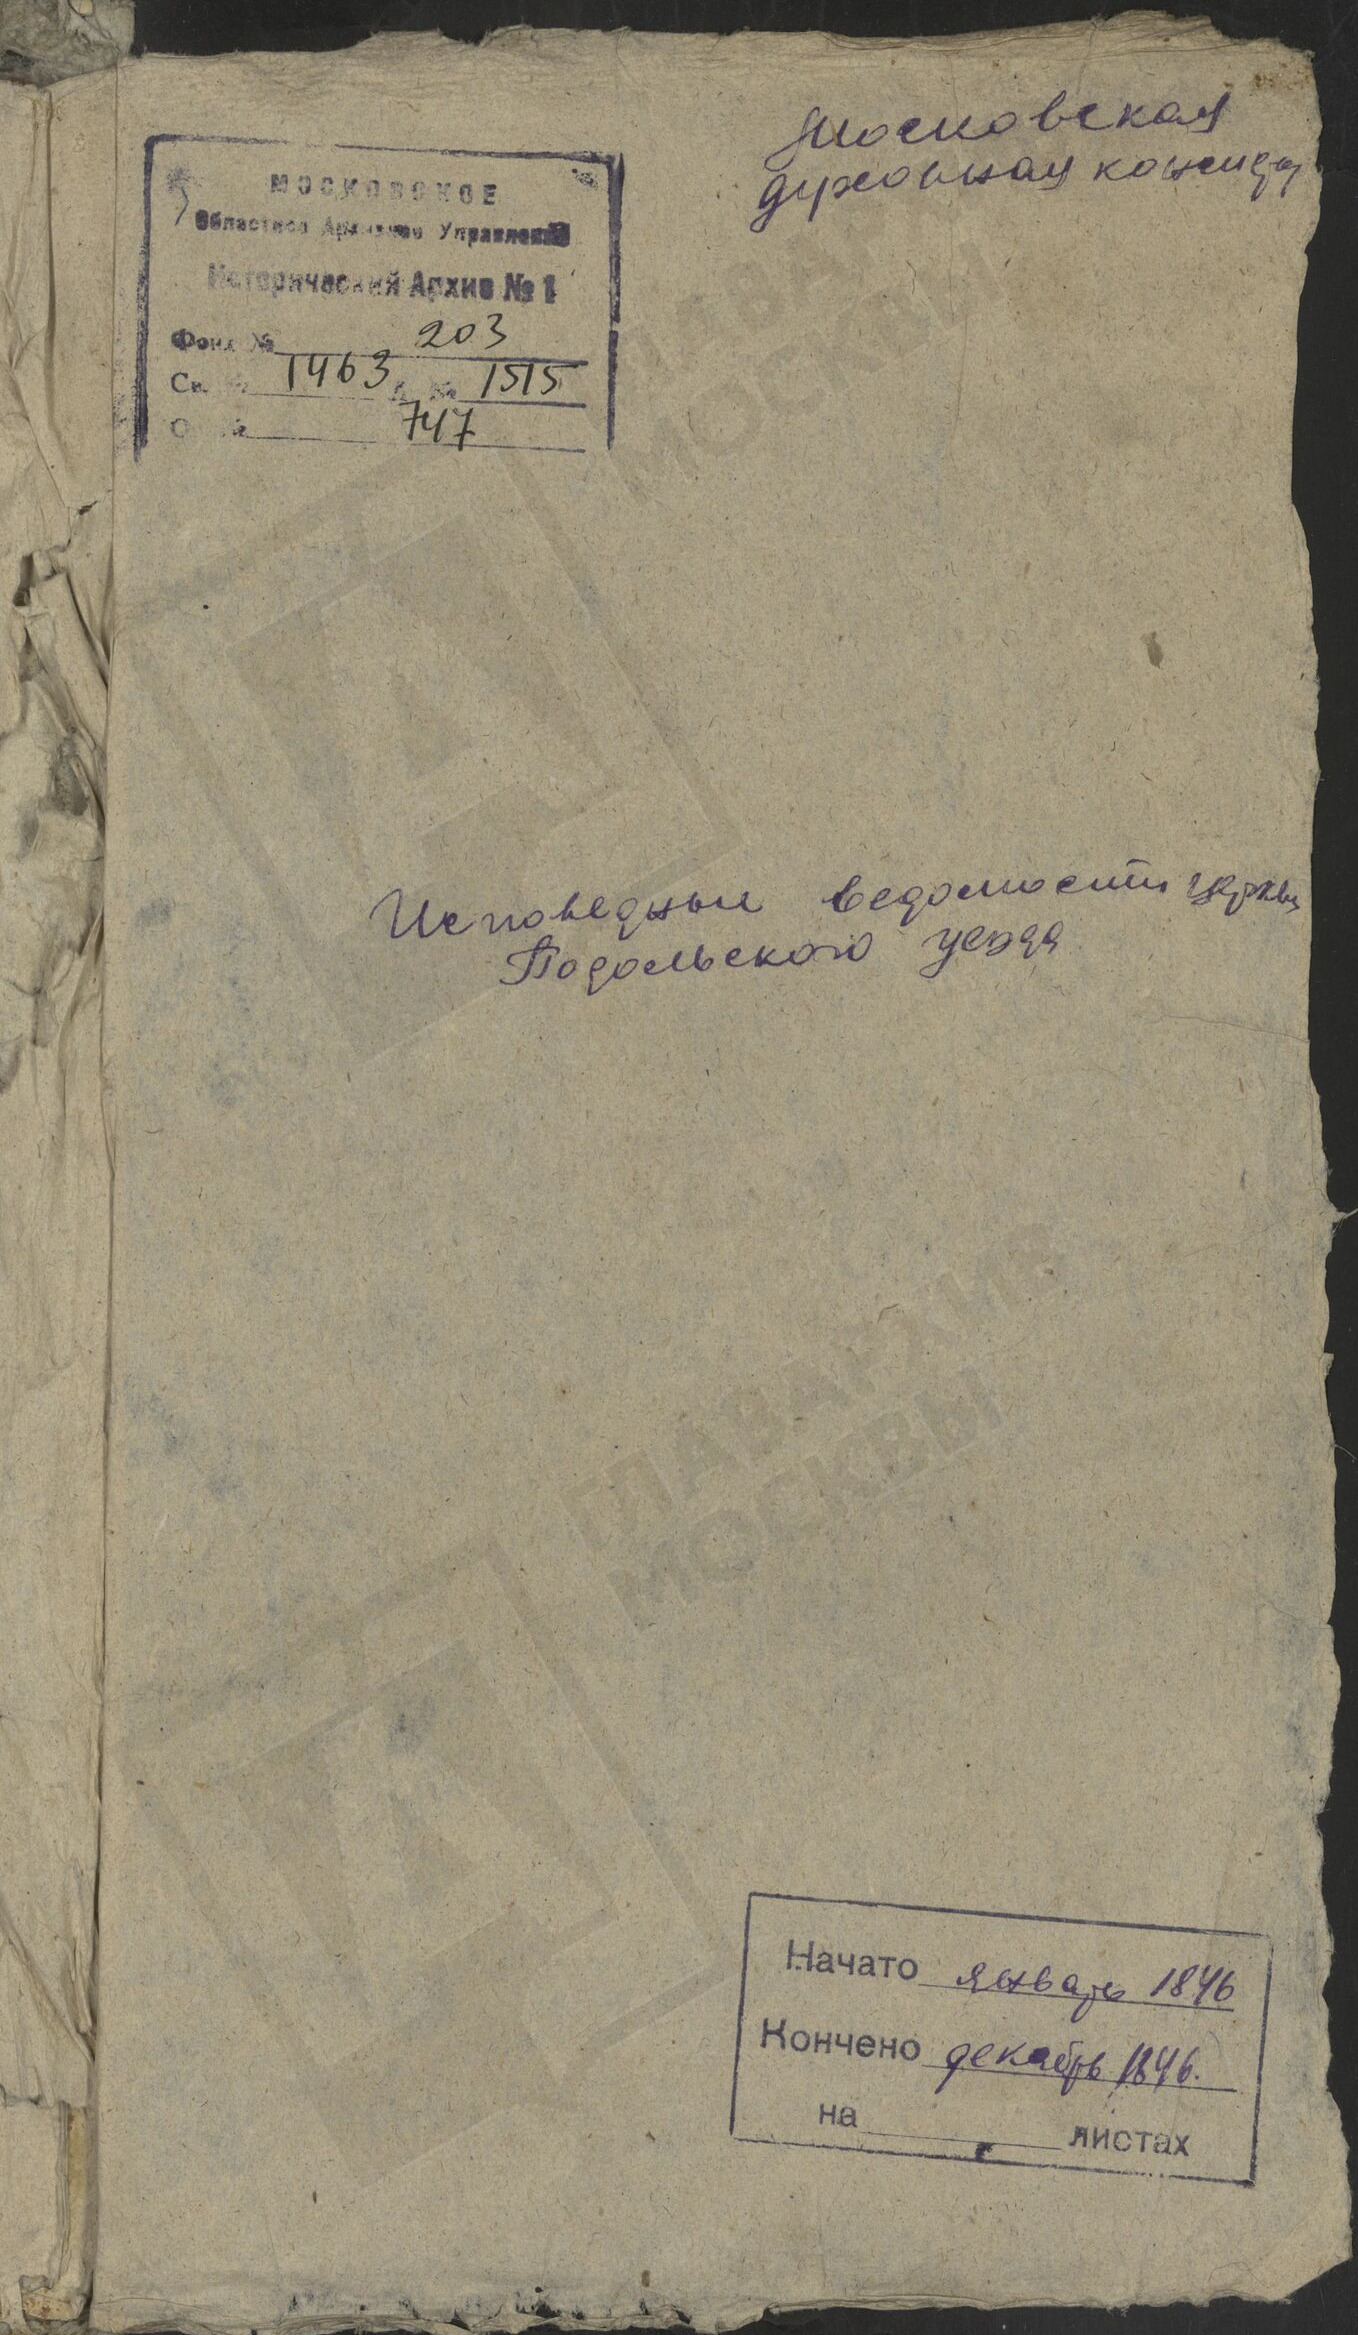 Московская
духовная консистор
МОСКОВСКОЕ
Областное Архивное Управление
Исторический Архив № 1
Фонд № 203
Св. № 1463 Д. № 1515
О № 747
Исповедные ведомости церквей
Подольского уезда
ГЛАВАРХИВ
МОСКВЫ
ГЛАВАРХИВ
МОСКВЫ
Начато январь 1846
Кончено декабрь 1846.
на листах